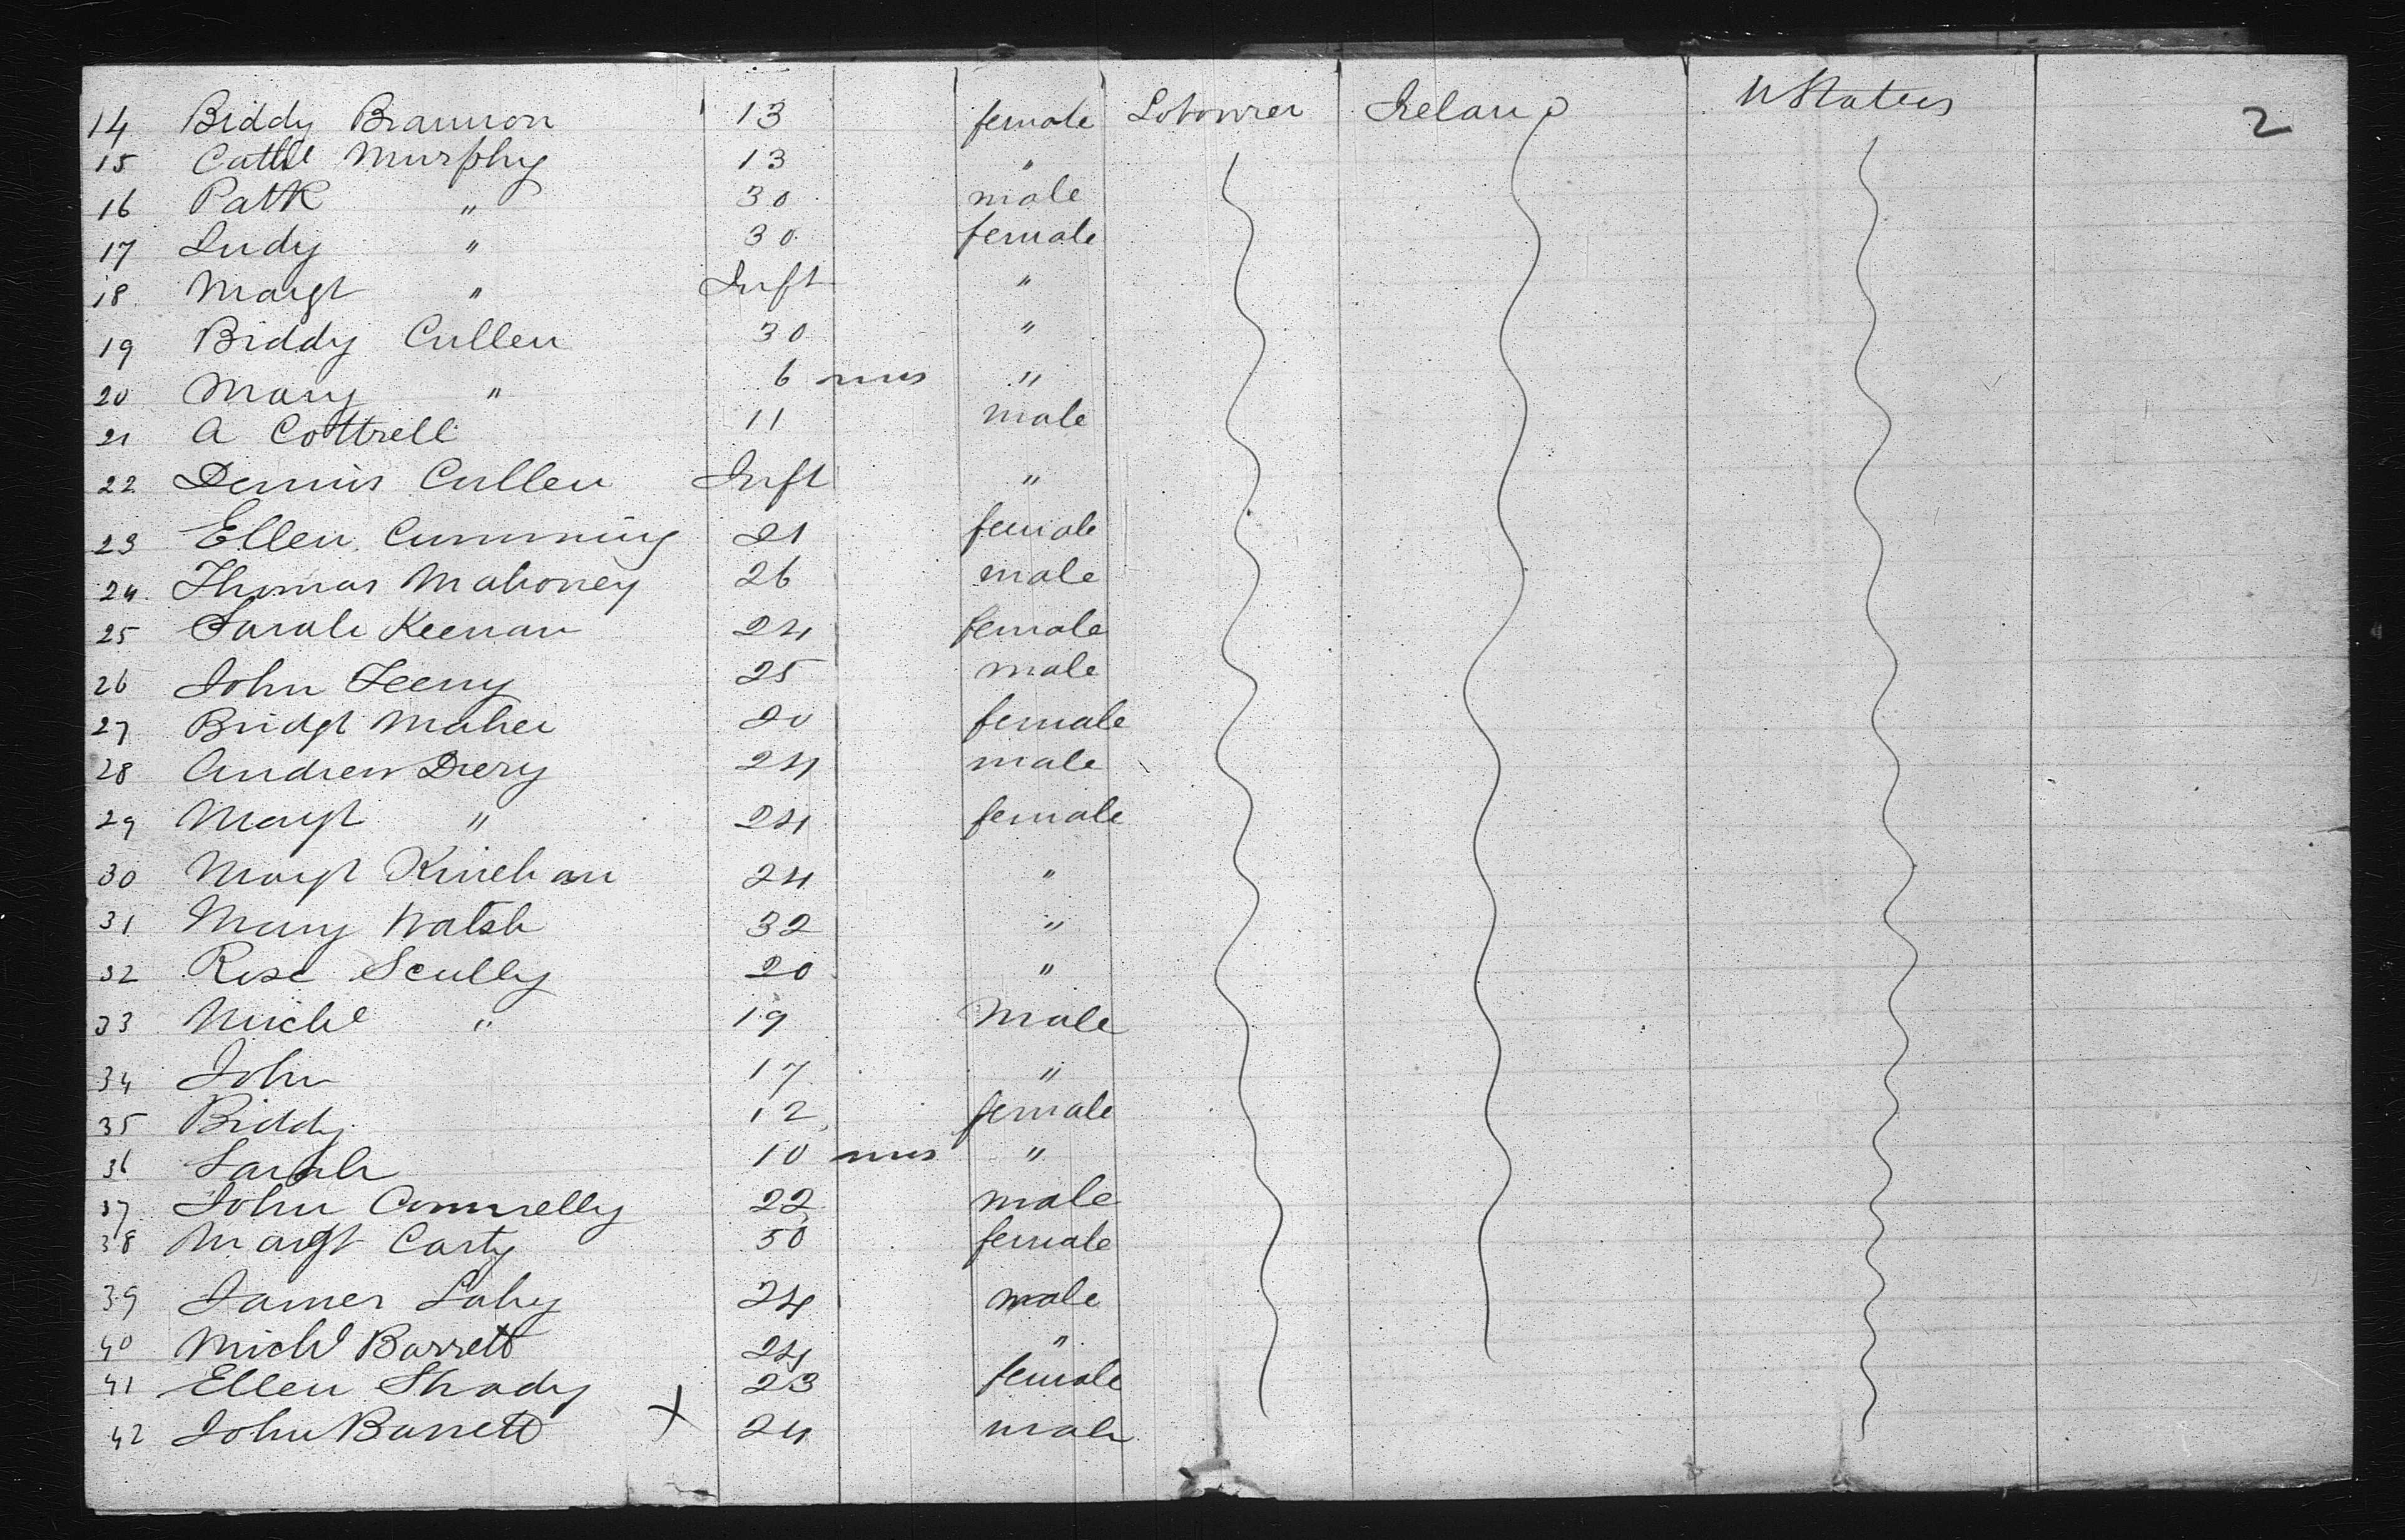 2
14 Biddy Brannon 13 female Labourer Ireland U States
15 Cathe Murphy 13 "
16 Patk " 30 male
17 Judy " 30 female
18 Margt " Inft "
19 Biddy Cullen 30 "
20 Mary " 6 mos "
21 A Cottrell 11 male
22 Dennis Cullen Inft "
23 Ellen Cumming 21 female
24 Thomas Mahoney 26 male
25 Sarah Keenan 24 female
26 John Feeny 25 male
27 Bridgt Maher 20 female
28 Andrew Drery 24 male
29 Margt " 24 female
30 Margt Kinehan 24 "
31 Mary Walsh 32 "
32 Rose Scully 20 "
33 Michl " 19 Male
34 John 17 "
35 Biddy 12 female
36 Sarah 10 mos "
37 John Connelly 22 male
38 Margt Carty 50 female
39 James Lahy 24 male
40 Michl Barrett 24 "
41 Ellen Shady 23 female
42 John Barrett X 24 male